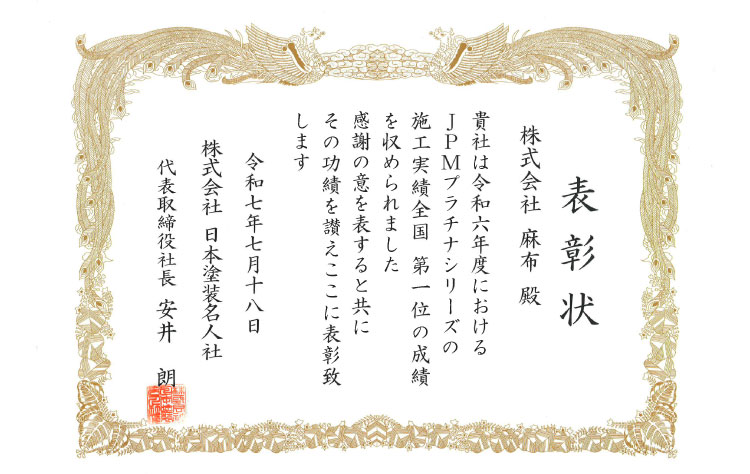 表彰状
株式会社 麻布 殿
貴社は令和六年度における
JPMプラチナシリーズの
施工実績全国 第一位の成績
を収められました
感謝の意を表すると共に
その功績を讃えここに表彰致
します
令和七年七月十八日
株式会社 日本塗装名人社
代表取締役社長 安井 朗